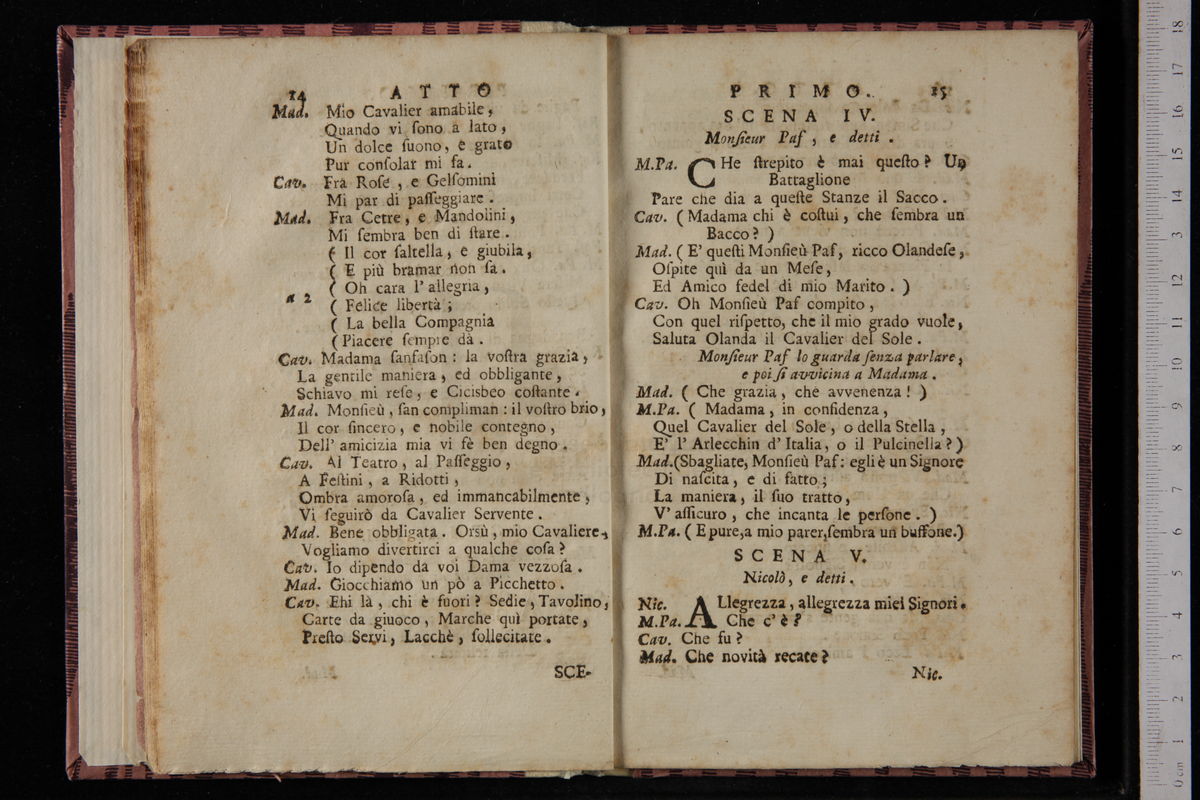 14 ATTO
Mad. Mio Cavalier amabile,
Quando vi ſono a lato,
Un dolce ſuono, e grato
Pur conſolar mi fa.
Cav. Fra Roſe, e Gelſomini
Mi par di paſſeggiare.
Mad. Fra Cetre, e Mandolini,
Mi ſembra ben di ſtare.
( Il cor ſaltella, e giubila,
( E più bramar non ſa.
( Oh cara l'allegria,
a 2 ( Felice libertà;
( La bella Compagnia
( Piacere ſempre dà.
Cav. Madama ſanfaſon: la voſtra grazia,
La gentile maniera, ed obbligante,
Schiavo mi reſe, e Cicisbeo coſtante.
Mad. Monſieù, ſan compliman: il voſtro brio,
Il cor ſincero, e nobile contegno,
Dell'amicizia mia vi fè ben degno.
Cav. Al Teatro, al Paſſeggio,
A Feſtini, a Ridotti,
Ombra amoroſa, ed immancabilmente,
Vi ſeguirò da Cavalier Servente.
Mad. Bene obbligata. Orsù, mio Cavaliere,
Vogliamo divertirci a qualche coſa?
Cav. Io dipendo da voi Dama vezzoſa.
Mad. Giocchiamo un pò a Picchetto.
Cav. Ehi là, chi è fuori? Sedie, Tavolino,
Carte da giuoco, Marche quì portate,
Preſto Servi, Lacchè, ſollecitate.
SCE-
PRIMO. 15
SCENA IV.
Monſieur Paf, e detti.
M.Pa. CHe ſtrepito è mai queſto? Un
Battaglione
Pare che dia a queſte Stanze il Sacco.
Cav. (Madama chi è coſtui, che ſembra un
Bacco?)
Mad. (E' queſti Monſieù Paf, ricco Olandeſe,
Oſpite quì da un Meſe,
Ed Amico fedel di mio Marito.)
Cav. Oh Monſieù Paf compito,
Con quel riſpetto, che il mio grado vuole,
Saluta Olanda il Cavalier del Sole.
Monſieur Paf lo guarda ſenza parlare,
e poi ſi avvicina a Madama.
Mad. (Che grazia, che avvenenza!)
M.Pa. (Madama, in confidenza,
Quel Cavalier del Sole, o della Stella,
E' l'Arlecchin d'Italia, o il Pulcinella?)
Mad. (Sbagliate, Monſieù Paf: egli è un Signore
Di naſcita, e di fatto;
La maniera, il ſuo tratto,
V'aſſicuro, che incanta le perſone.)
M.Pa. (Epure, a mio parer, ſembra un buffone.)
SCENA V.
Nicolò, e detti.
Nic. ALlegrezza, allegrezza miei Signori.
M.Pa. Che c'è?
Cav. Che fu?
Mad. Che novità recate?
Nic.
0 cm 1 2 3 4 5 6 7 8 9 10 11 12 13 14 15 16 17 18